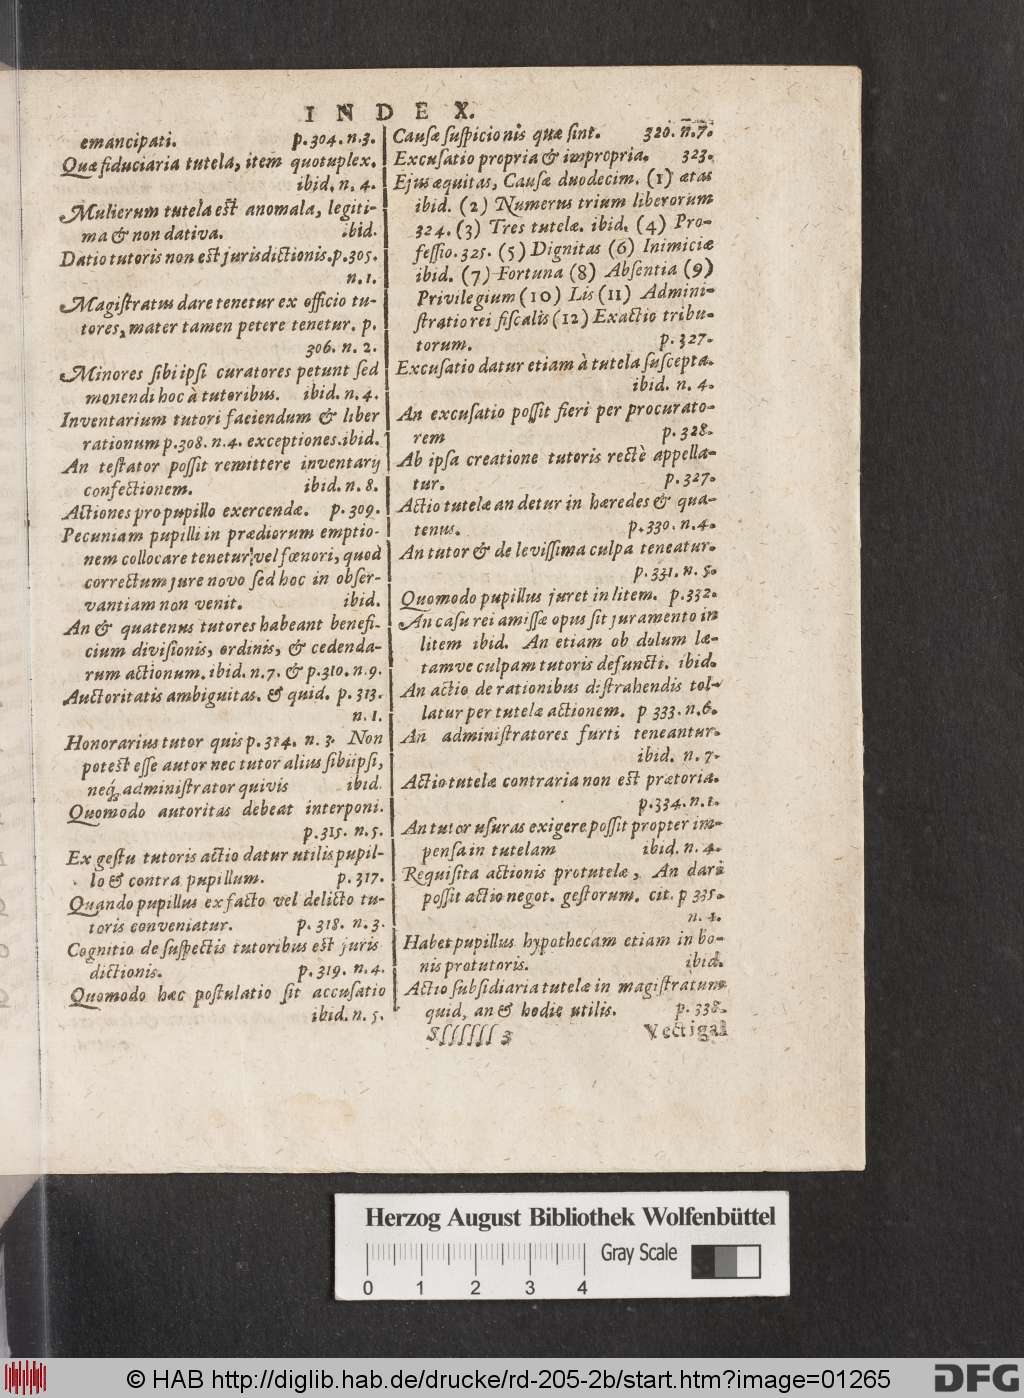 INDEX.
emancipati. p.304. n.3.
Quæ fiduciaria tutela, item quotuplex.
ibid. n. 4.
Mulierum tutela est anomala, legiti-
ma & non dativa. ibid.
Datio tutoris non est jurisdictionis. p.305.
n.1.
Magistratus dare tenetur ex officio tu-
tores, mater tamen petere tenetur. p.
306. n. 2.
Minores sibi ipsi curatores petunt sed
monendi hoc à tutoribus. ibid. n. 4.
Inventarium tutori faciendum & liber
rationum p.308. n.4. exceptiones. ibid.
An testator possit remittere inventarij
confectionem. ibid. n. 8.
Actiones pro pupillo exercendæ. p. 309.
Pecuniam pupilli in prædiorum emptio-
nem collocare tenetur, vel fœnori, quod
correctum jure novo sed hoc in obser-
vantiam non venit. ibid.
An & quatenus tutores habeant benefi-
cium divisionis, ordinis, & cedenda-
rum actionum. ibid. n.7. & p.310. n.9.
Auctoritatis ambiguitas. & quid. p. 313.
n.1.
Honorarius tutor quis p. 314. n. 3. Non
potest esse autor nec tutor alius sibi ipsi,
neq; administrator quivis ibid.
Quomodo autoritas debeat interponi.
p.315. n. 5.
Ex gestu tutoris actio datur utilis pupil-
lo & contra pupillum. p.317.
Quando pupillus ex facto vel delicto tu-
toris conveniatur. p. 318. n. 3.
Cognitio de suspectis tutoribus est juris
dictionis. p.319. n.4.
Quomodo hæc postulatio sit accusatio
ibid. n. 5.
Causæ suspicionis quæ sint. 320. n.7.
Excusatio propria & impropria. 323.
Ejus æquitas, Causæ duodecim. (1) ætas
ibid. (2) Numerus trium liberorum
324. (3) Tres tutelæ. ibid. (4) Pro-
fessio. 325. (5) Dignitas (6) Inimiciæ
ibid. (7) Fortuna (8) Absentia (9)
Privilegium (10) Lis (11) Admini-
stratio rei fiscalis (12) Exactio tribu-
torum. p. 327.
Excusatio datur etiam à tutela suscepta.
ibid. n. 4.
An excusatio possit fieri per procurato-
rem p. 328.
Ab ipsa creatione tutoris rectè appella-
tur. p.327.
Actio tutelæ an detur in hæredes & qua-
tenus. p.330. n.4.
An tutor & de levissima culpa teneatur.
p.331. n. 5.
Quomodo pupillus juret in litem. p.332.
An casu rei amissæ opus sit juramento in
litem ibid. An etiam ob dolum læ-
tamve culpam tutoris defuncti. ibid.
An actio de rationibus distrahendis tol-
latur per tutelæ actionem. p 333. n.6.
An administratores furti teneantur.
ibid. n. 7.
Actio tutelæ contraria non est prætoria.
p.334. n.1.
An tutor usuras exigere possit propter im-
pensa in tutelam ibid. n. 4.
Requisita actionis protutelæ, An dari
possit actio negot. gestorum. cit. p 335.
n. 1.
Habet pupillus hypothecam etiam in bo-
nis protutoris. ibid.
Actio subsidiaria tutelæ in magistratum
quid, an & hodie utilis. p. 338.
Sſſſſſſ 3 Vectigal
Herzog August Bibliothek Wolfenbüttel
Gray Scale
0 1 2 3 4
© HAB http://diglib.hab.de/drucke/rd-205-2b/start.htm?image=01265
DFG